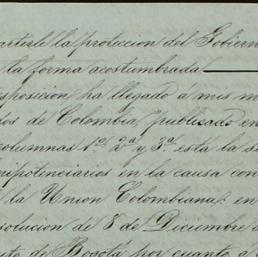 artirle la proteccion del Gobiern
la forma acostumbrada
sposicion ha llegado á mis m
dos de Colombia, publicado en
columnas 1.ª 2.ª y 3.ª está la s
nipotenciarios en la causa con
la Union Colombiana: en
solucion de 8 de Diciembre d
to de Bogotá por cuanto á l